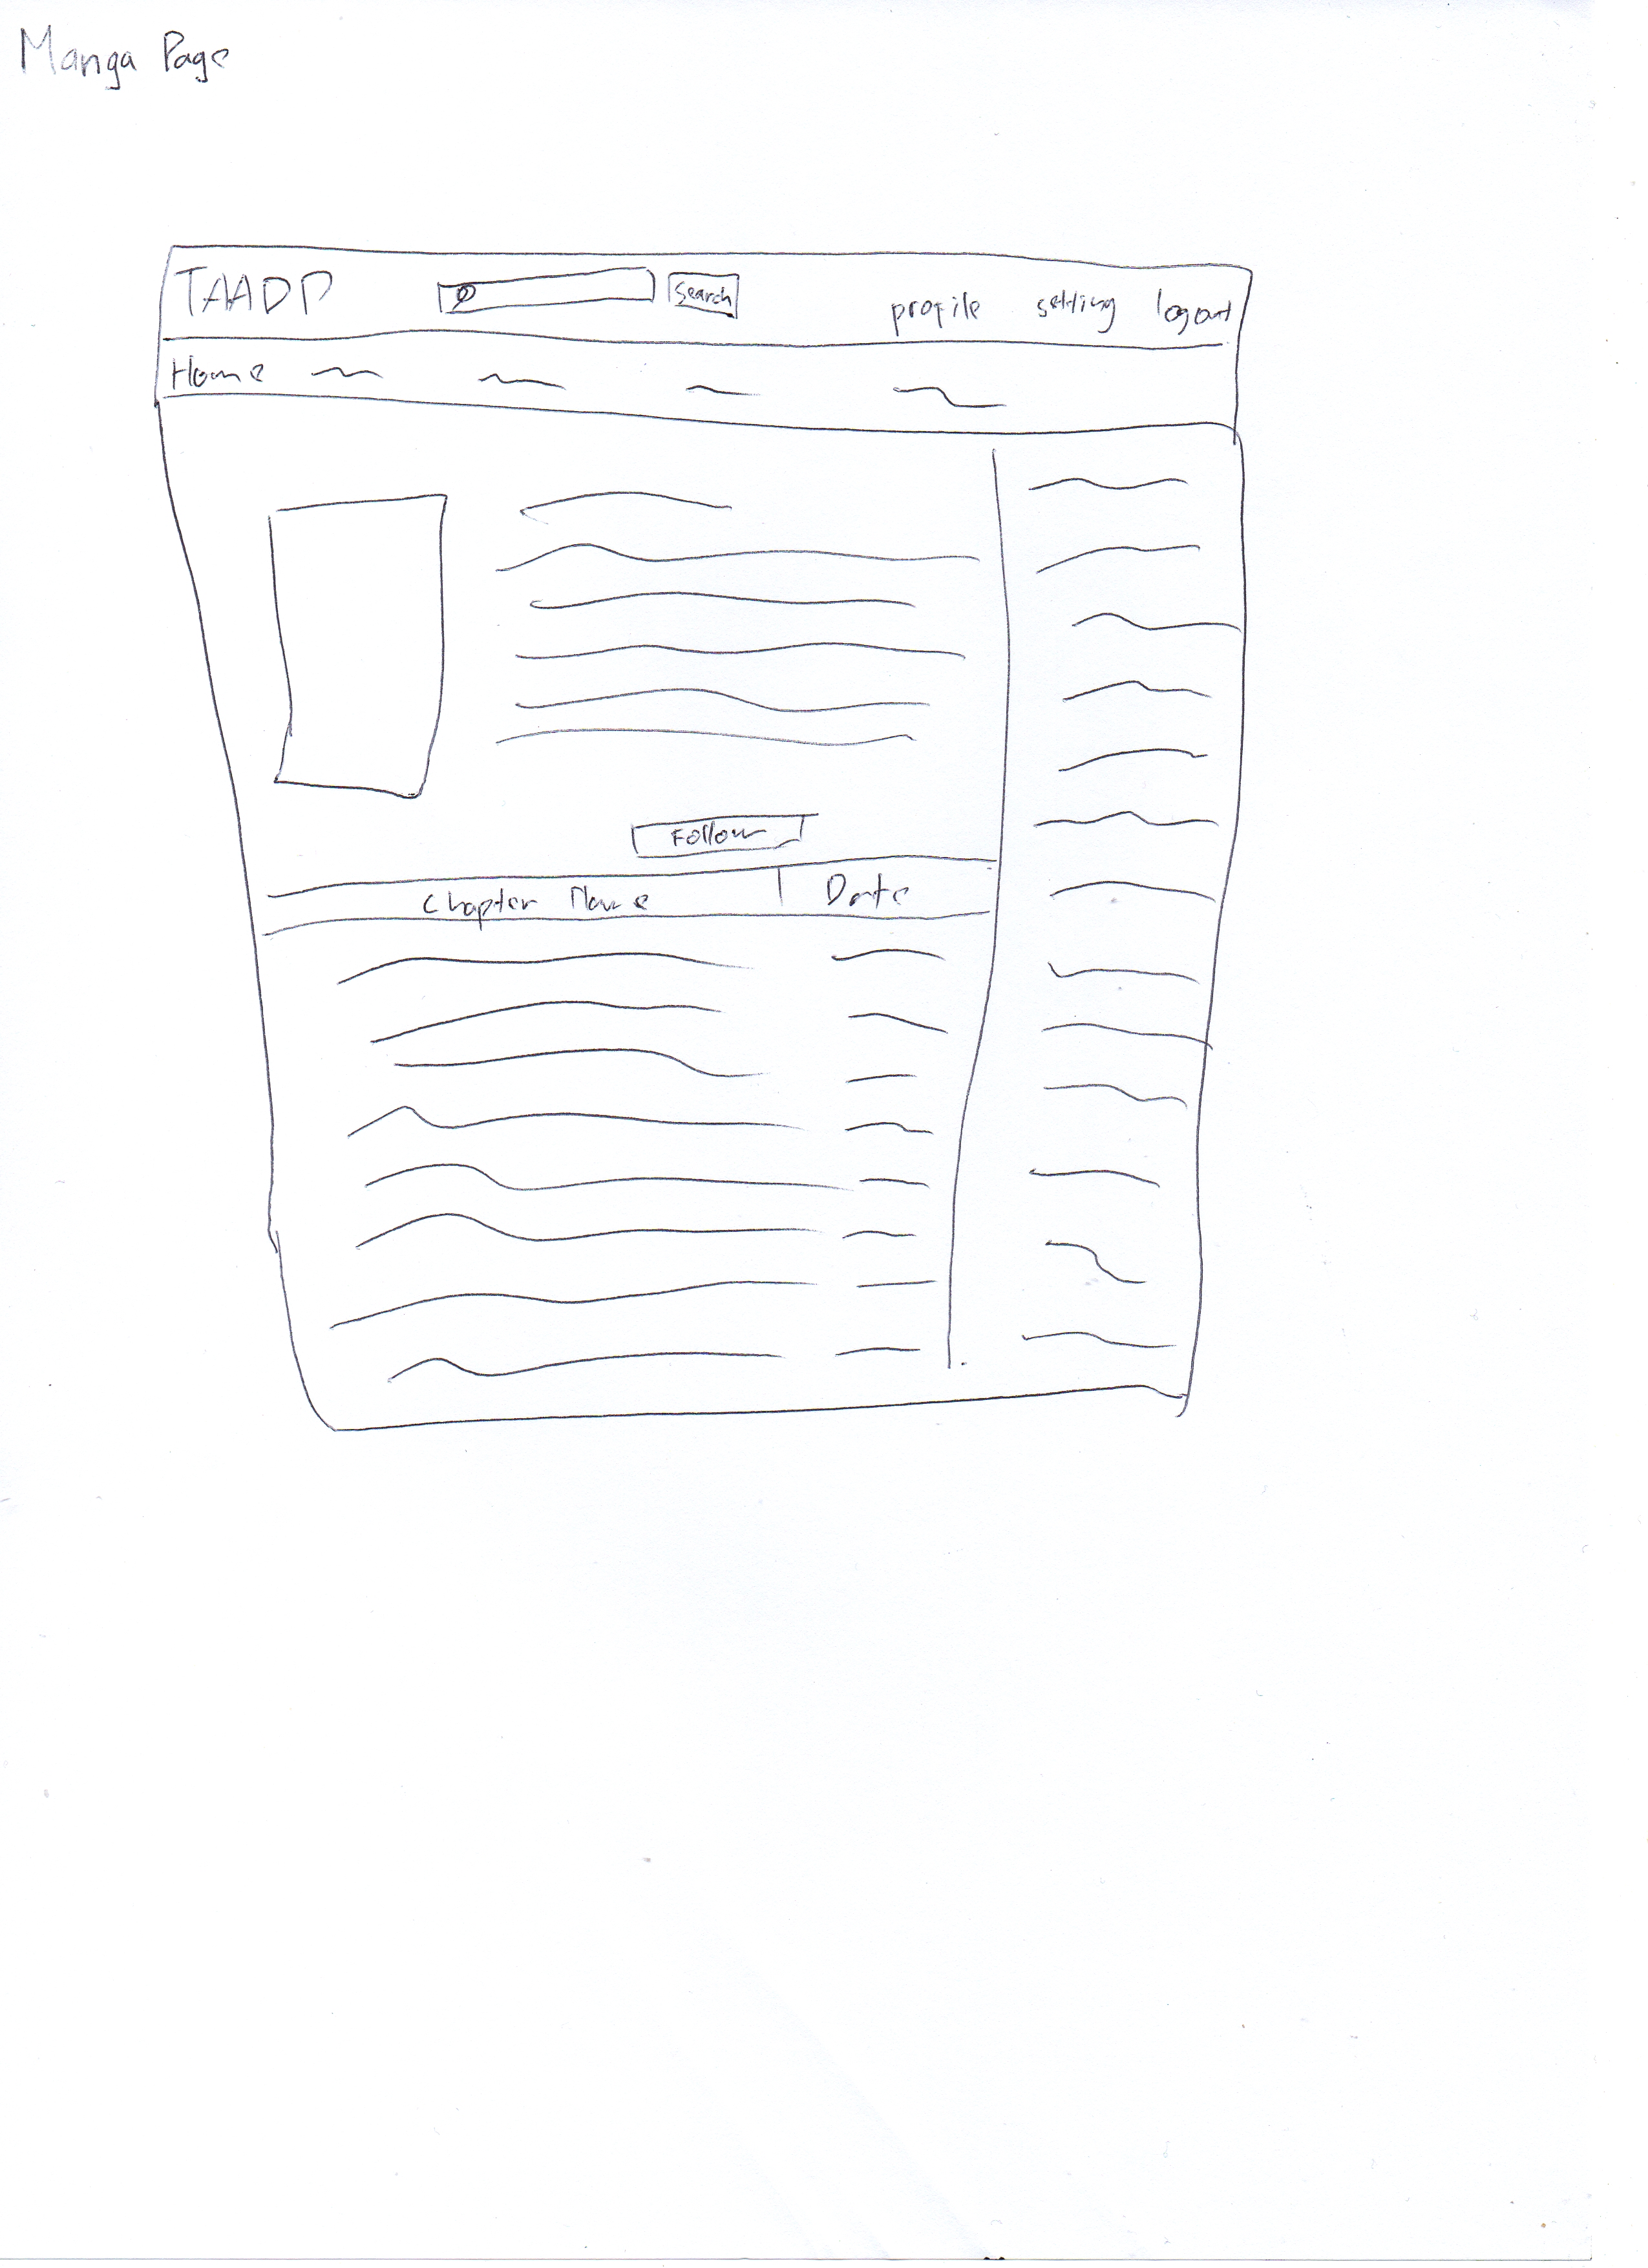 Manga Page
TAADP Search profile setting logout
Home
Follow
Chapter Name Date